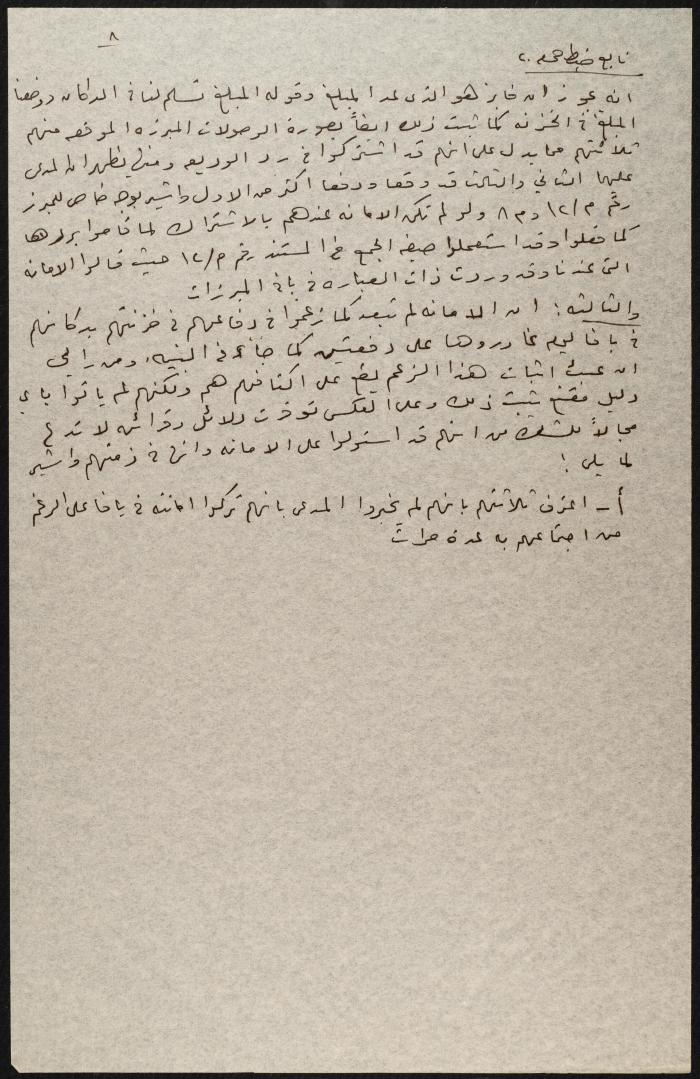 ٨
تابع ضبط جلسة ٢٠
انه عو ز ان فايز هو الذي عد المبلغ وقوله المبلغ تسلم لنا في الدكان ووضعنا
المبلغ في الخزنه كما ثبت ذلك ايضاً بصورة الوصولات المبرزه الموقعه منهم
ثلاثتهم مما يدل على انهم قد اشتركوا في رد الوديعه ومنها يظهر ان المدعى
عليهما الثاني والثالث قد وقعا ودفعا اكثر من الاول واشير بوجه خاص للمبرز
رقم م/١٢ و م ٨ ولو لم تكن الامانه عندهم بالاشتراك لما قاموا بردها
كما فعلوا وقد استعملوا صيغة الجمع في المستند رقم م/١٢ حيث قالوا الامانه
التي عندنا وقد وردت ذات العباره في باقي المبرزات
والثالثة: ان الامانه لم تبق كما زعموا في دفاعهم في خزنتهم بدكانهم
في يافا ليوم غادروها على دفعتين كما جاء في البينه، ومن رأيي
ان عبء اثبات هذا الزعم يقع على اكتافهم هم ولكنهم لم ياتوا باي
دليل مقنع يثبت ذلك وعلى العكس توفرت دلائل وقرائن لا تدع
مجالاً للشك من انهم قد استولوا على الامانه وانها في ذمتهم واشير
لما يلي:
أ - اعترف ثلاثتهم بانهم لم يخبروا المدعي بانهم تركوا امانته في يافا على الرغم
من اجتماعهم به عدة مرات